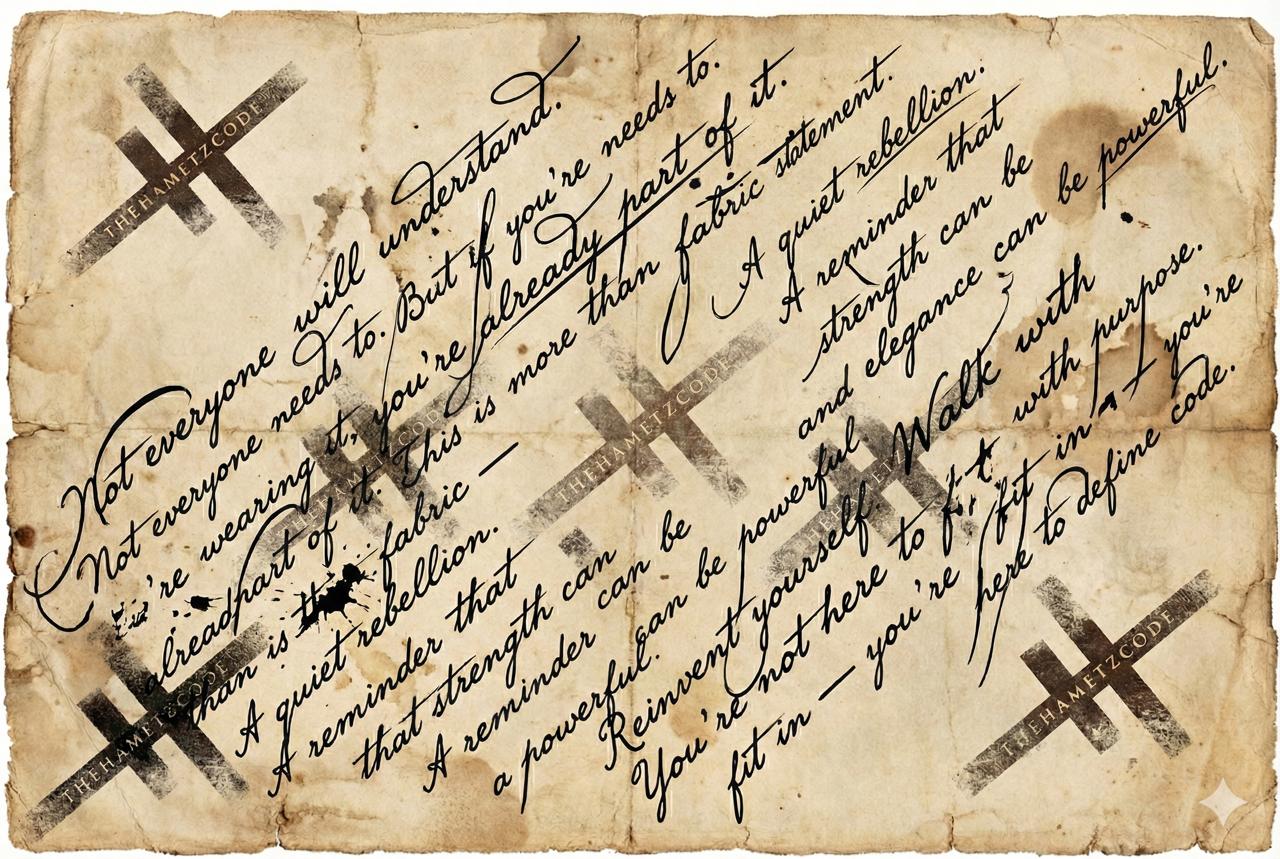 THEHAMETZCODE
Not everyone will understand.
Not everyone needs to. But if you're needs to.
're wearing it, you're already part of it.
already part of it. This is more than fabric statement.
than is fabric —
A quiet rebellion.
A quiet rebellion.
A reminder that
A reminder that
strength can be
that strength can
and elegance can be powerful.
A reminder can be
a powerful. can be powerful.
Walk with
Reinvent yourself. with purpose.
You're not here to fit in — you're
fit in — you're here to define code.
THEHAMETZCODE
THEHAMETZCODE
THEHAMETZCODE